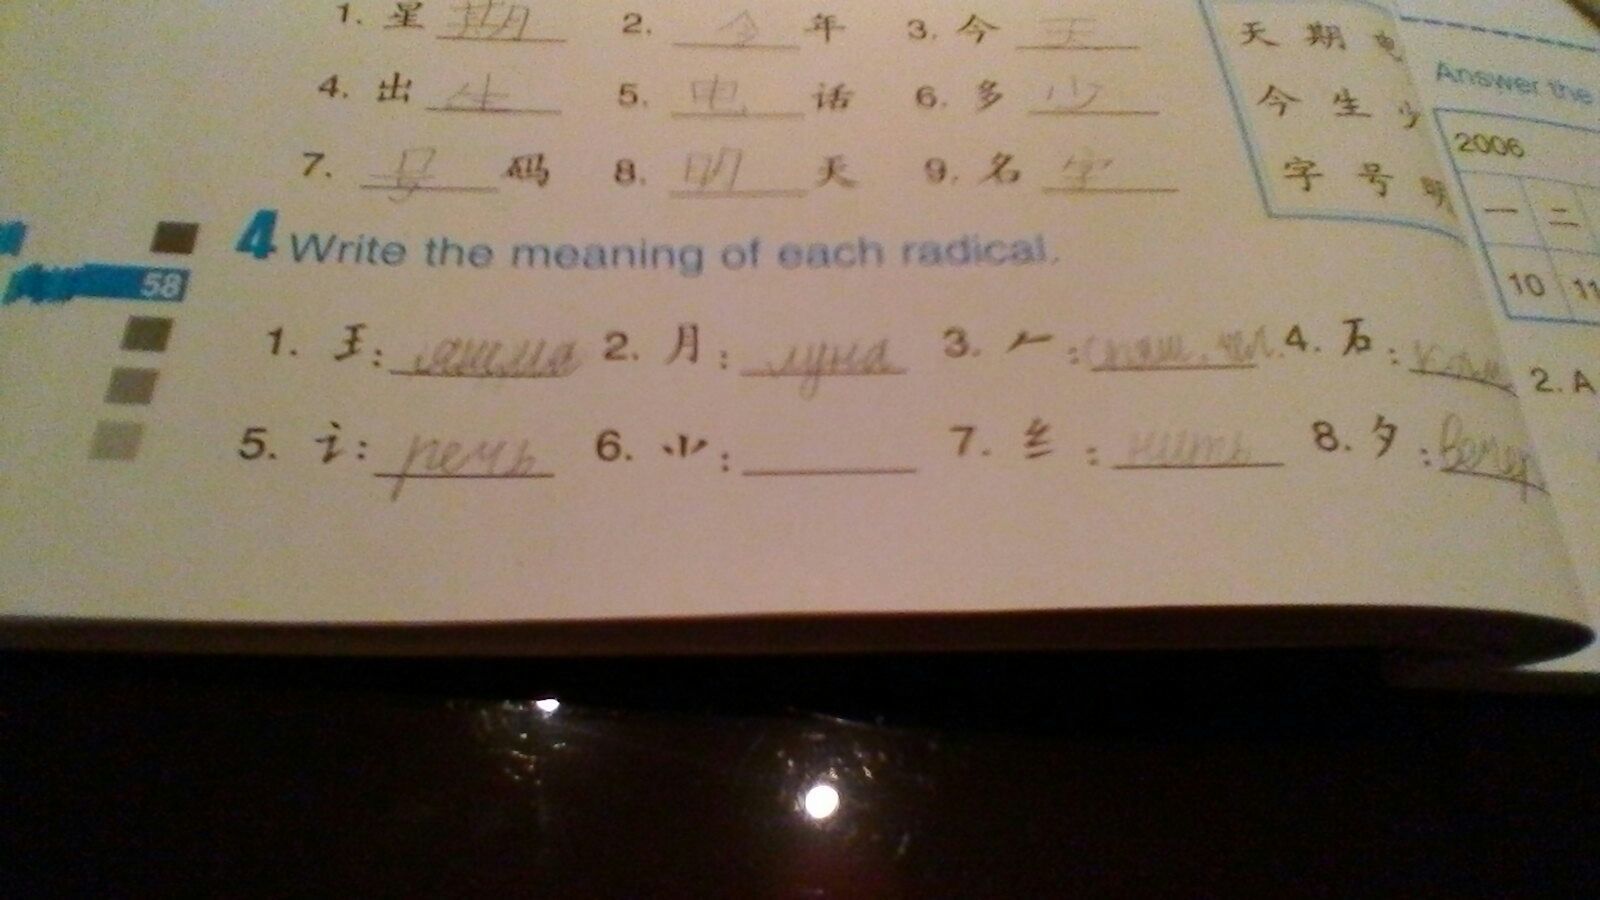 1. 星 期 2. 今 年 3. 今 天 天 期 电
Answer the
4. 出 生 5. 电 话 6. 多 少 今 生 少
2006
7. 号 码 8. 明 天 9. 名 字 字 号 明
一 二
4 Write the meaning of each radical.
58
10 11
1. 王: яшма 2. 月: луна 3. 𠂉: 4. 石: 2. A
5. 讠: речь 6. ⺌: 7. 纟: нить 8. 夕: вечер